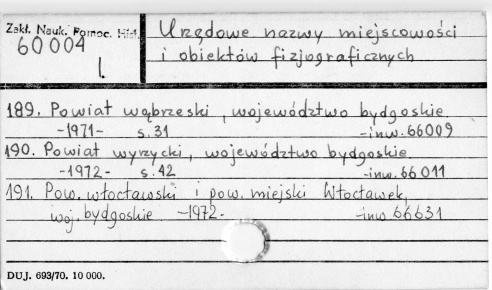 Zakł. Nauk. Pomoc. Hist.
60004
I.
Urzędowe nazwy miejscowości
i obiektów fizjograficznych
189. Powiat wąbrzeski, województwo bydgoskie
-1971- s.31 -inw.66009
190. Powiat wyrzycki, województwo bydgoskie
-1972- s.42 -inw.66011
191. Pow. włocławski i pow. miejski Włocławek,
woj. bydgoskie -1972- -inw 66631
DUJ. 693/70. 10 000.